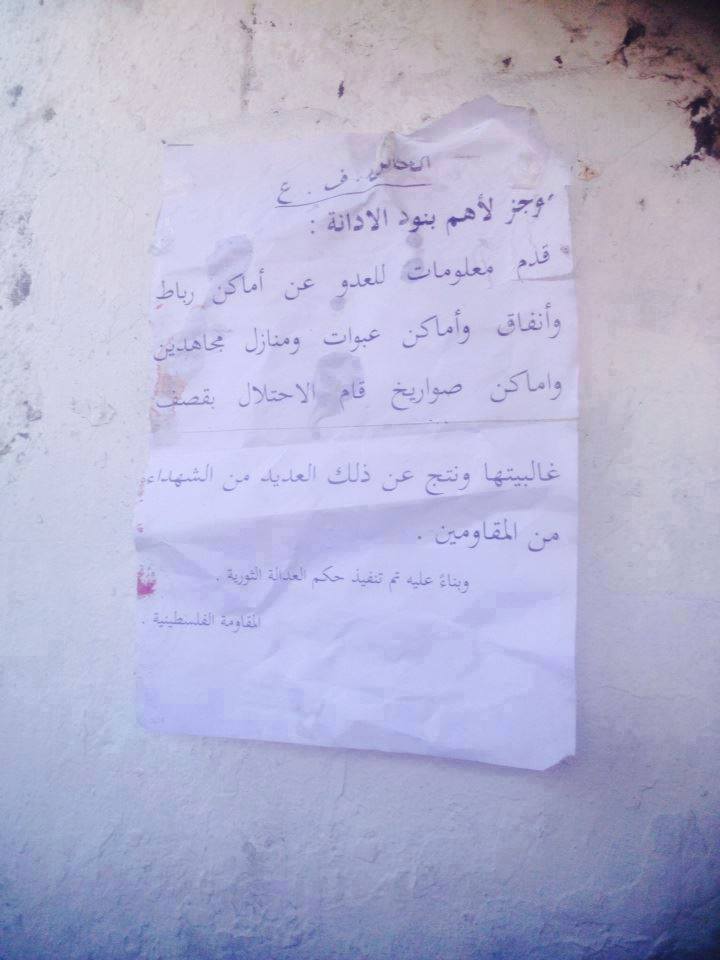 الخائن . ف . ع
موجز لأهم بنود الادانة :
قدم معلومات للعدو عن أماكن رباط
وأنفاق وأماكن عبوات ومنازل مجاهدين
واماكن صواريخ قام الاحتلال بقصف
غالبيتها ونتج عن ذلك العديد من الشهداء
من المقاومين .
وبناءً عليه تم تنفيذ حكم العدالة الثورية .
المقاومة الفلسطينية .